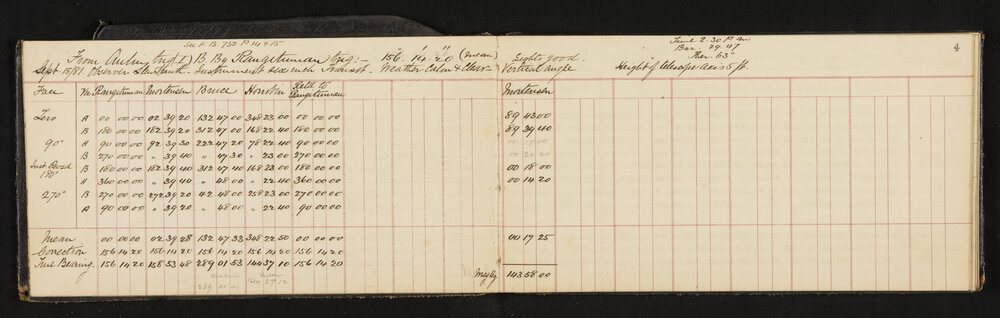 See F. B. 750 P 14+15
Time 2.30 P.m
Bar 29.47
Ther 63°
4
From Trig B. Bg Rangitumau Trig:- 156° 14' 20" (mean) Sights good.
Sept 15/81 Observer Instrument six inch Transit. Weather Calm & Clear Vertical angle Height of telescope axis 5 ft.
Face Ver Rangitumau Mortensen Bruce Held to Rangitumau Mortensen
Zero A 00 00 00 02 39 20 132 47 00 348 23 00 00 00 00 89 43 00
B 180 00 00 182 39 20 312 47 00 168 22 40 180 00 00 89 39 40
90° A 90 00 00 92 39 30 222 47 20 78 22 40 90 00 00
B 270 00 00 " 39 40 " 47 30 " 23 00 270 00 00
180° B 180 00 00 182 39 40 312 47 40 168 23 00 180 00 00 00 18 00
A 360 00 00 " 39 40 " 48 00 " 22 40 360 00 00 00 14 20
270° B 270 00 00 272 39 20 42 48 00 258 23 00 270 00 00
A 90 00 00 " 39 20 " 48 00 " 22 40 90 00 00
Mean 00 00 00 02 39 28 132 47 33 348 22 50 00 00 00 00 17 25
Correction 156 14 20 156 14 20 156 14 20 156 14 20 156 14 20
True Bearing. 156 14 20 158 53 48 289 01 53 144 37 10 156 14 20 143 58 00